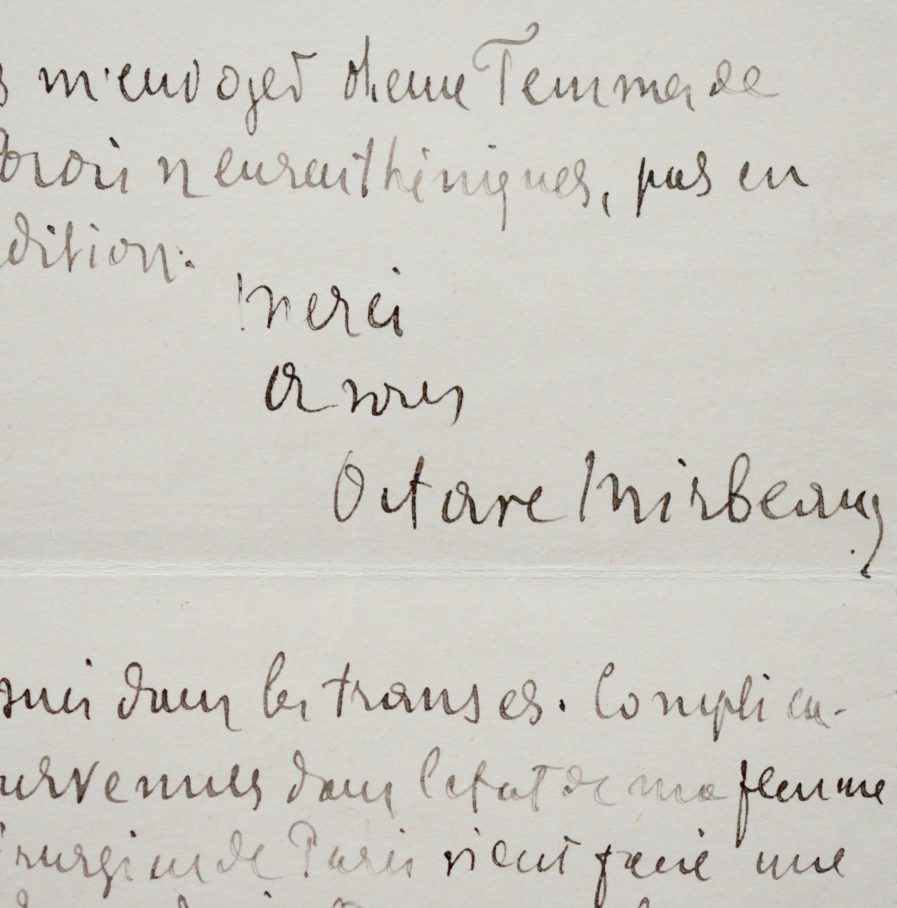 m'envoyez
neurasthéniques, pas en
dition.
merci
à vous
Octave Mirbeau
suis dans les transes. Complica-
survenues dans l'état de ma femme
irurgien de Paris vient faire une